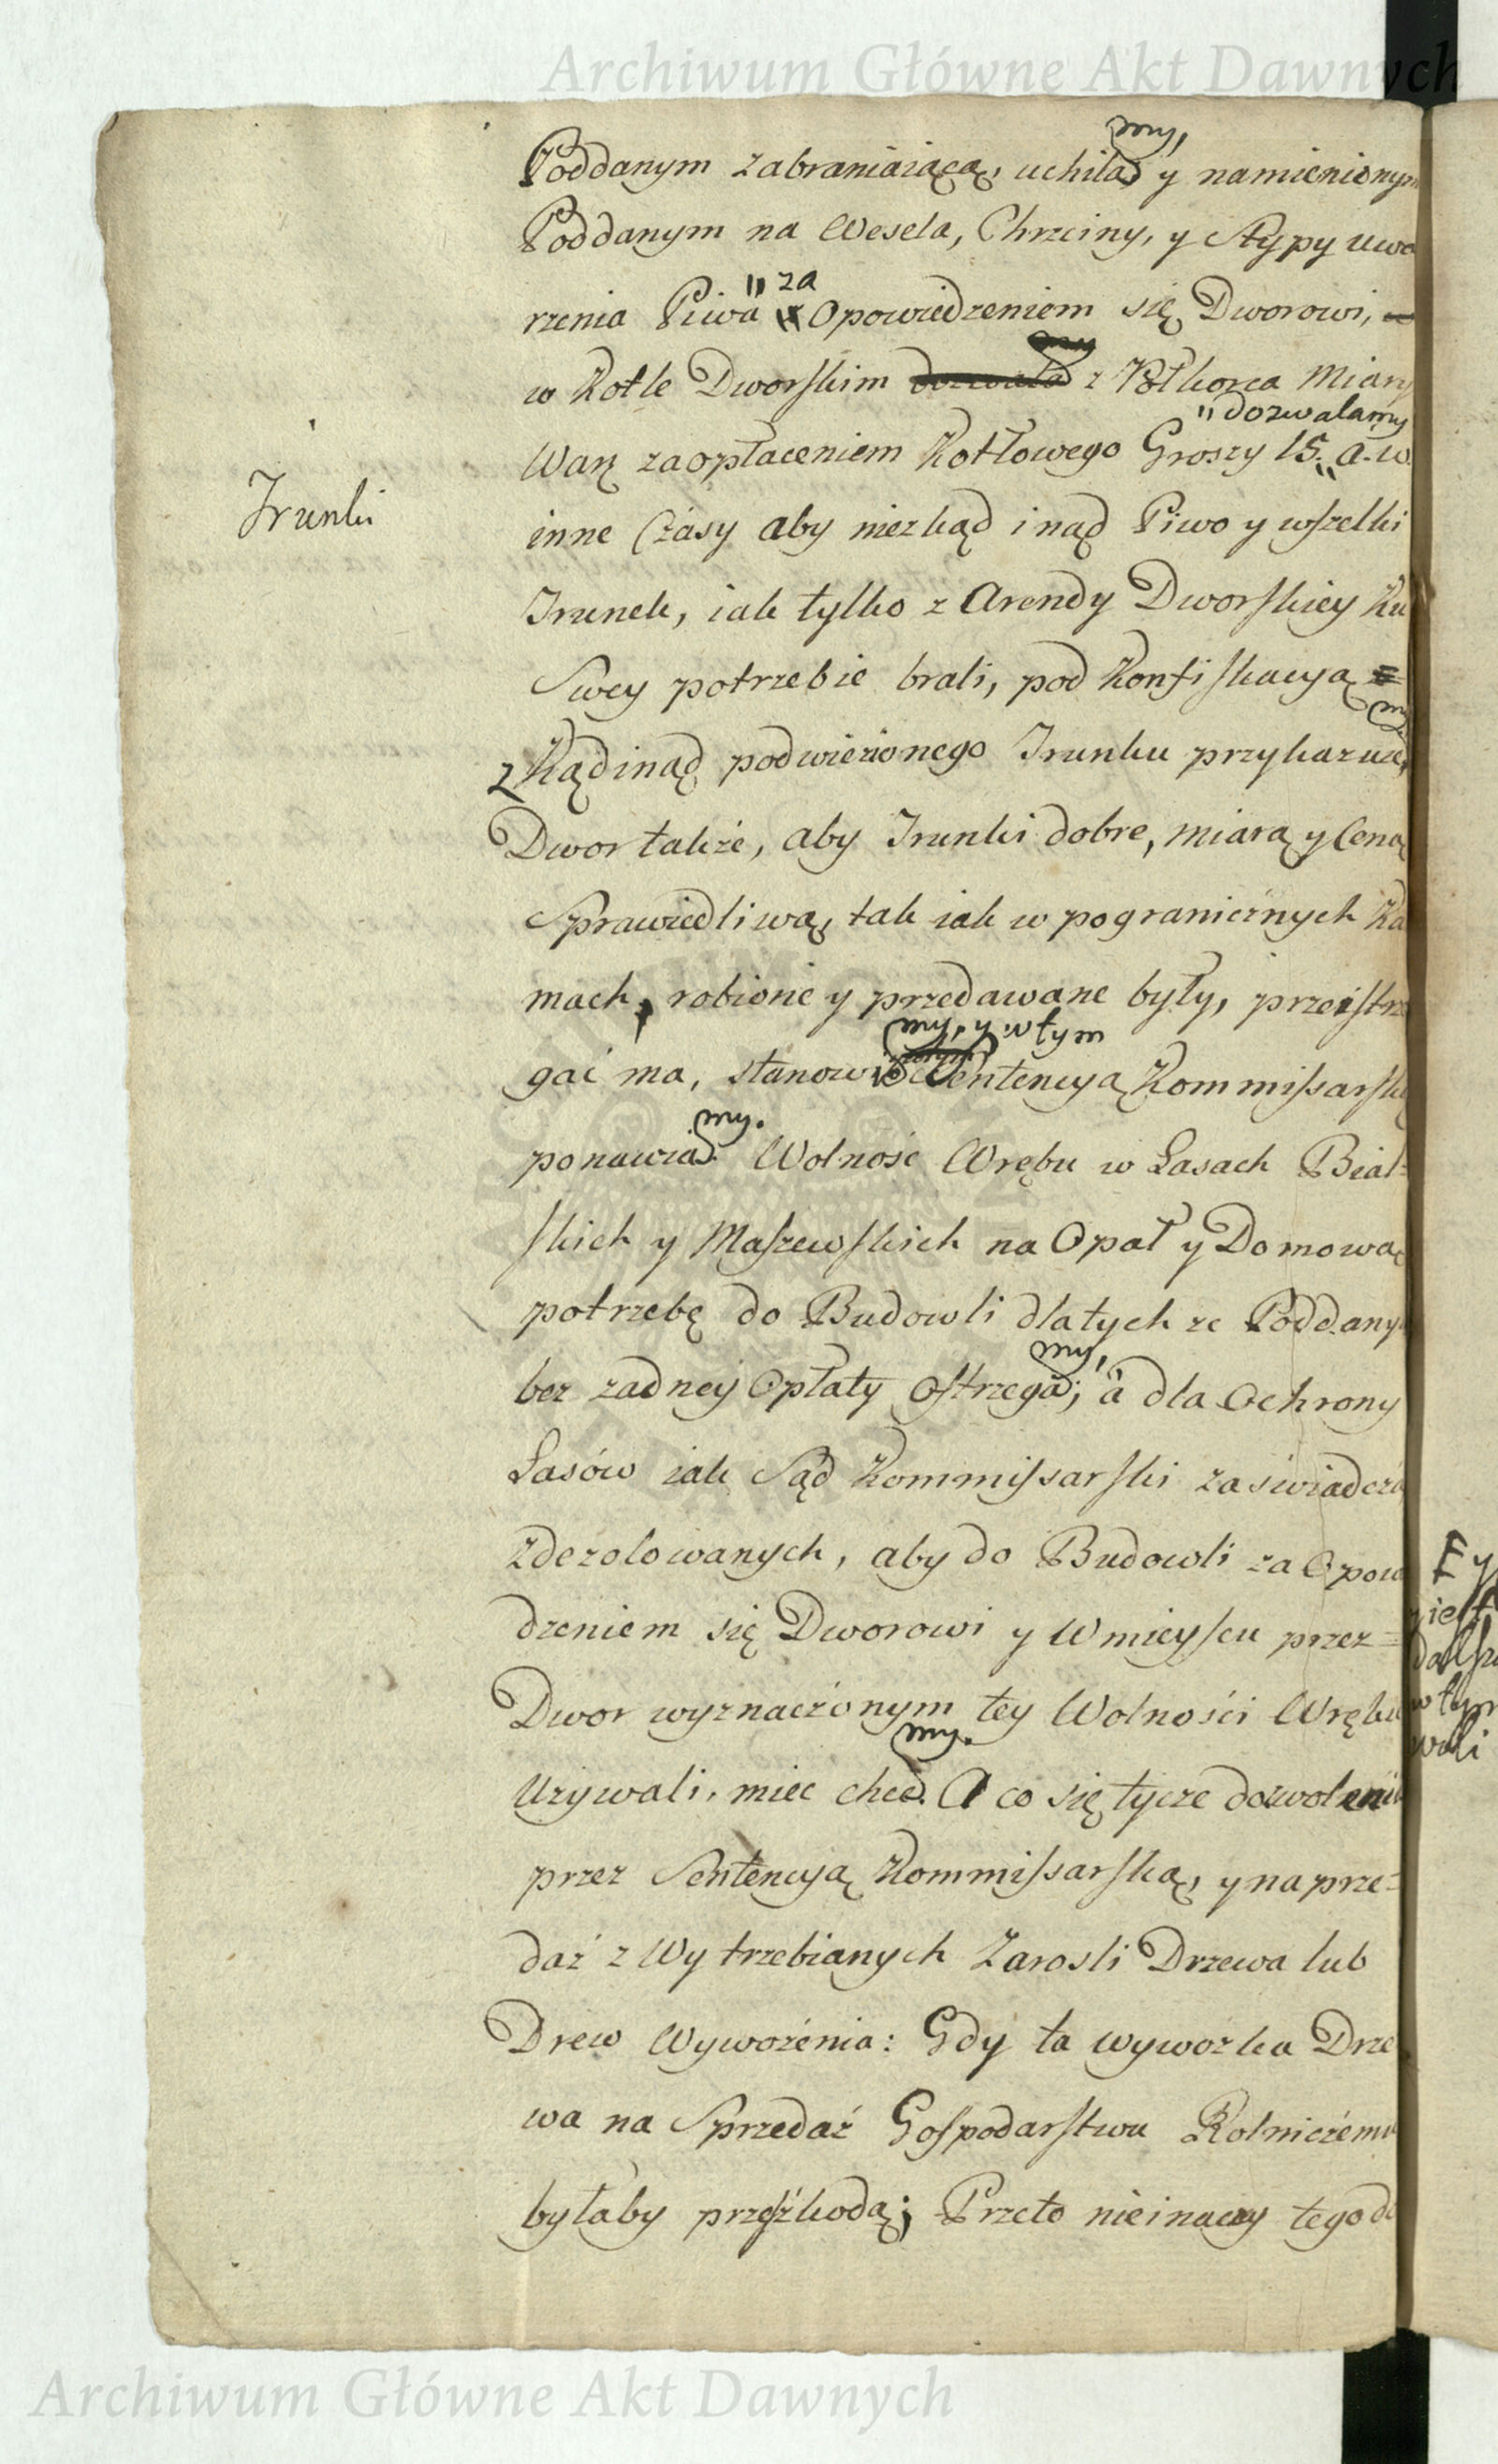 Archiwum Główne Akt Dawnych
my,
Poddanym zabraniaiącą, uchila y namienionym
Poddanym na Wesela, Chrzciny, y Stypy uwa
" za
rzenia Piwa Opowiedzeniem się Dworowi,
my
w Kotle Dworskim dozwala z Półkorca Miary
" dozwalamy
Warz zaopłaceniem Kotłowego Groszy 15. a. w
Trunki
inne Czasy aby niezkąd inąd Piwo y wszelki
Trunek, iak tylko z Arendy Dworskiey Ku
Swey potrzebie brali, pod Konfiskacyą
my
zkądinąd podwiezionego Trunku przykazuie,
Dwor także, aby Trunki dobre, miarą y Ceną
Sprawiedliwą, tak iak w pogranicznych Ka
mach, robione y przedawane były, przestrze
my, y w tym
gać ma, stanowi Sentencyą Kommissarską
my.
ponawia. Wolność Wrębu w Lasach Bial-
skich y Maszewskich na Opał y Domową
potrzebę do Budowli dlatych ze Poddany
my,
bez zadney Opłaty Ostrzega; a dla Ochrony
Lasów iak Sąd Kommissarski zaswiadcza
zdezolowanych, aby do Budowli za Opowie
dzeniem się Dworowi y W mieyscu przez
Dwor wyznaczonym tey Wolności Wrębu
my.
Używali, miec chce. A co się tycze dozwolenia
przez Sentencyą Kommissarską, y na prze-
daż z Wytrzebianych Zarosli Drzewa lub
Drew Wywożenia: Gdy ta wywozka Drze
wa na Sprzedaż Gospodarstwu Rolniczému
byłaby przeszkodą; Przeto nieinaczy tego do
Archiwum Główne Akt Dawnych